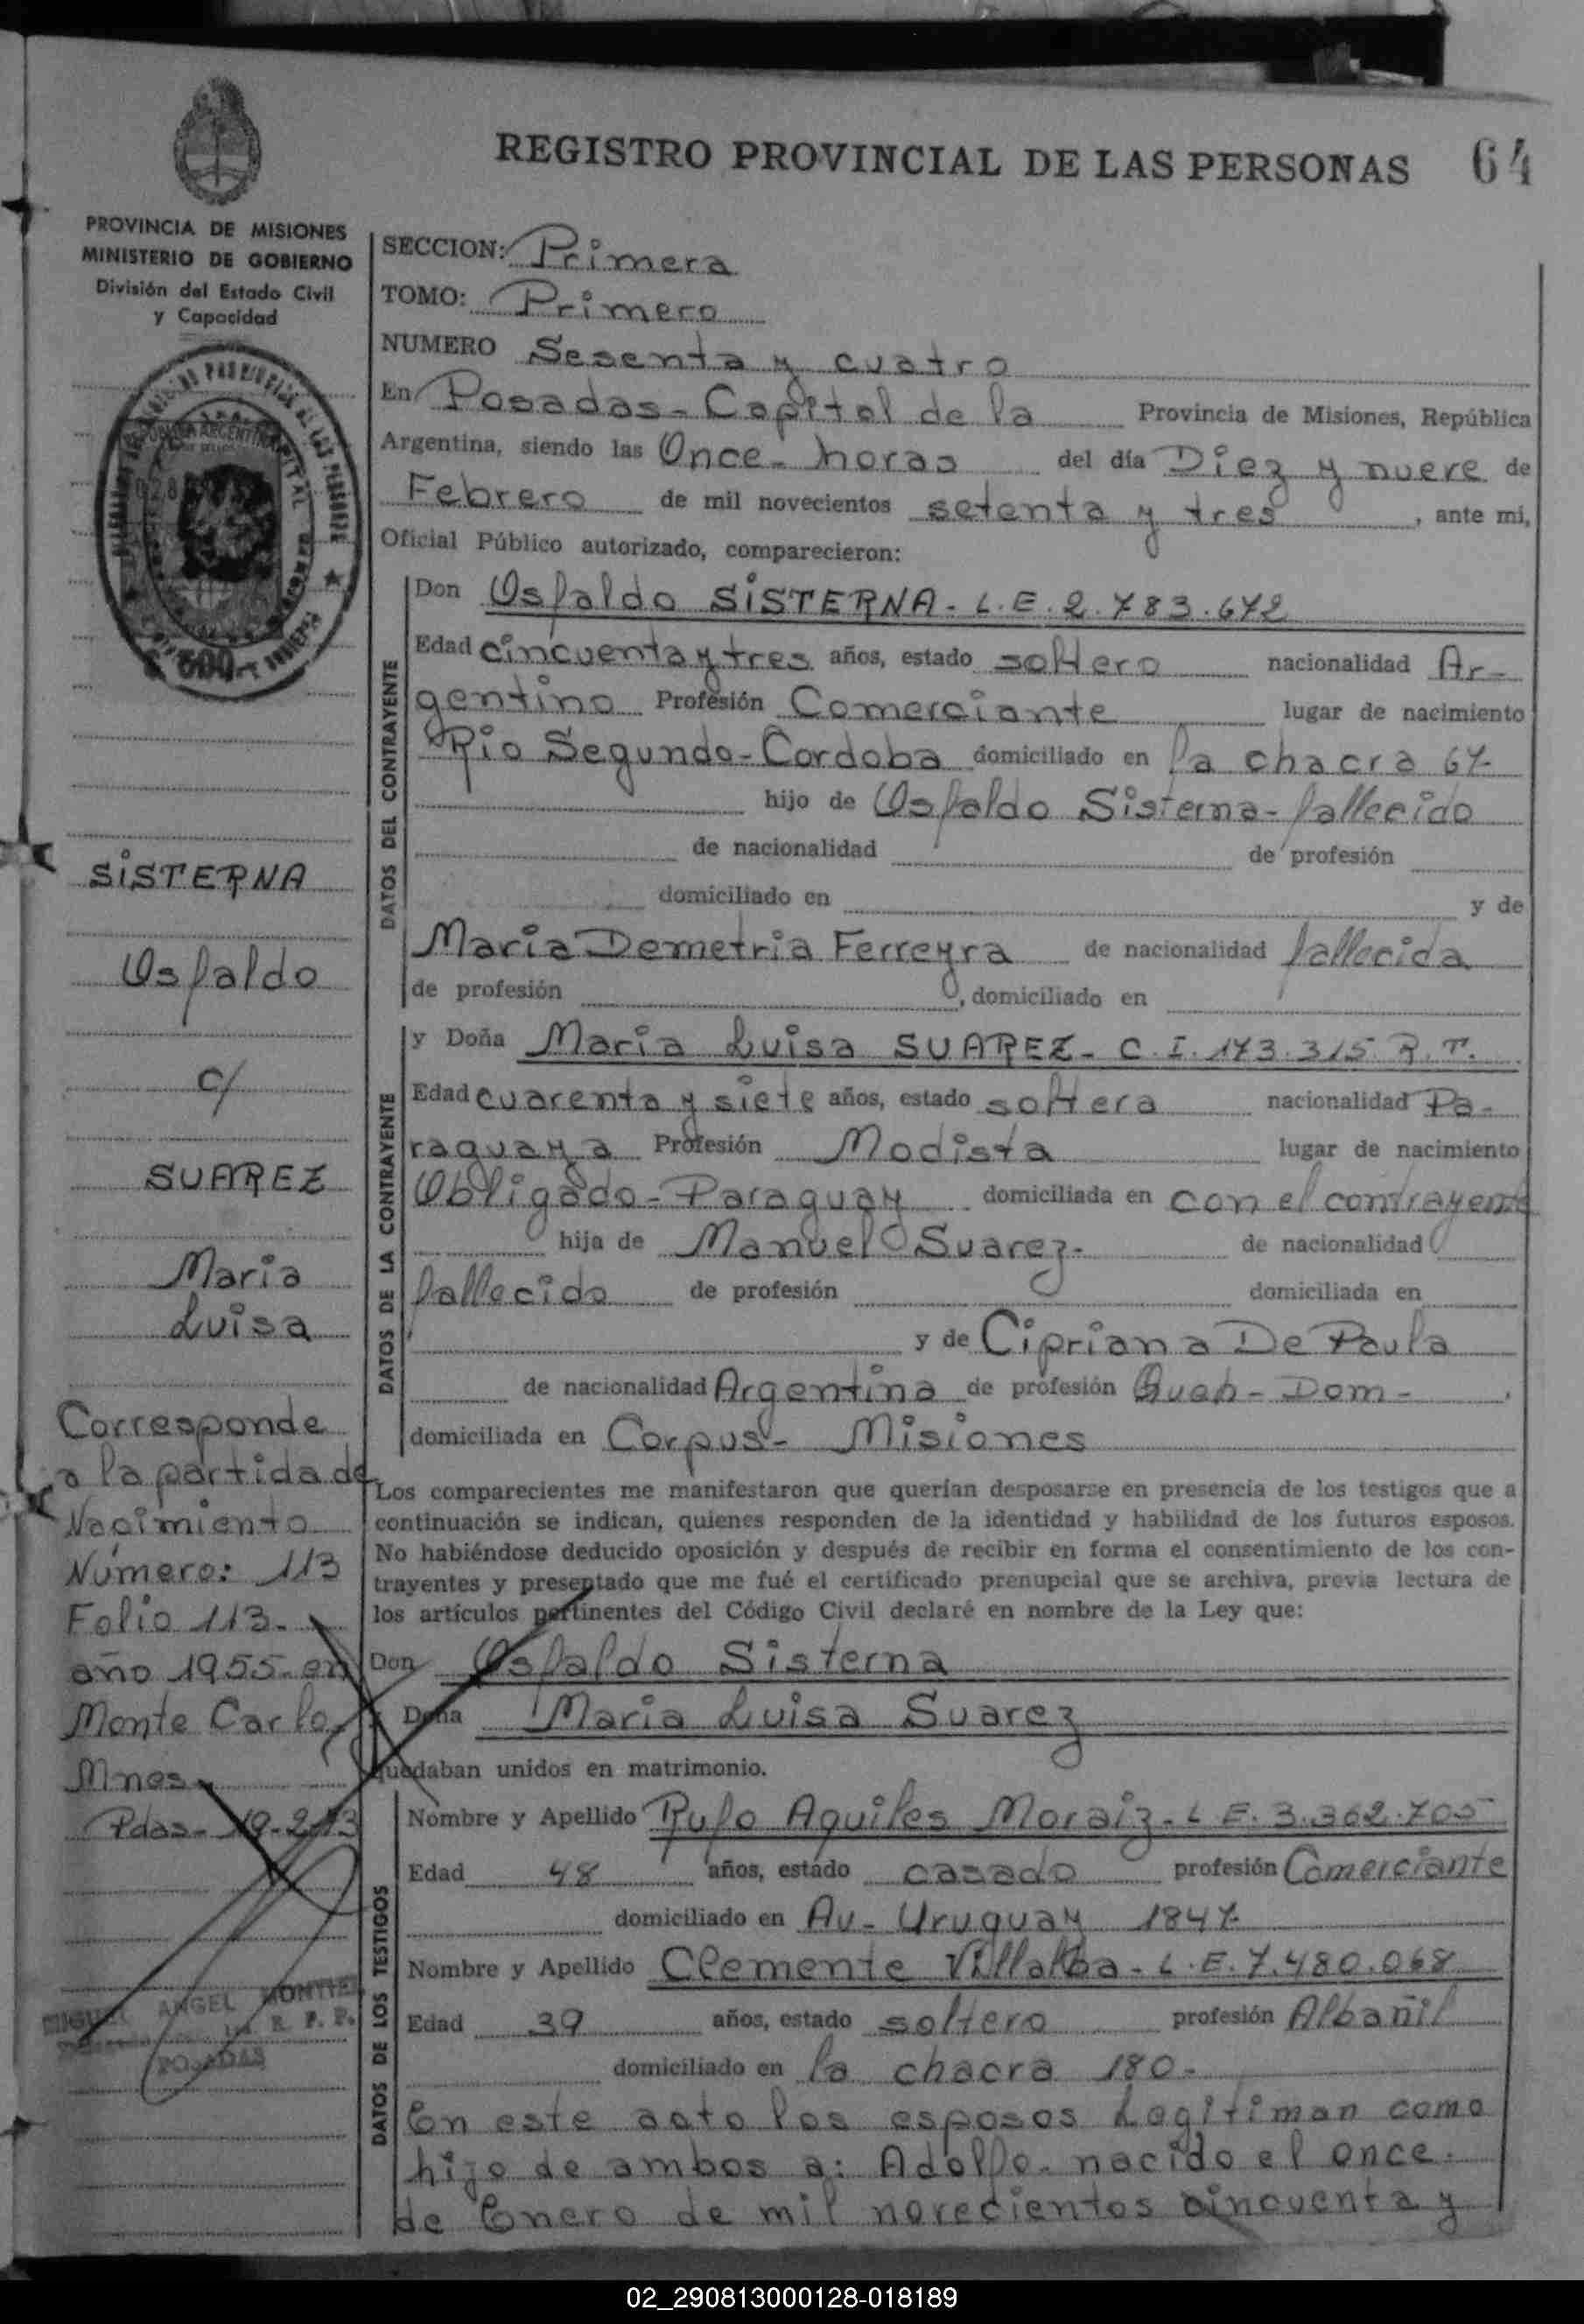 REGISTRO PROVINCIAL DE LAS PERSONAS 64
PROVINCIA DE MISIONES
MINISTERIO DE GOBIERNO
División del Estado Civil
y Capacidad
SECCION: Primera
TOMO: Primero
NUMERO Sesenta y cuatro
En Posadas - Capital de la Provincia de Misiones, República
Argentina, siendo las Once - horas del día Diez y nueve de
Febrero de mil novecientos setenta y tres, ante mi,
Oficial Público autorizado, comparecieron:
DATOS DEL CONTRAYENTE
Don Osfaldo SISTERNA - L.E. 2.783.672
Edad cincuenta y tres años, estado soltero nacionalidad Ar-
gentino Profesión Comerciante lugar de nacimiento
Rio Segundo - Cordoba domiciliado en la chacra 67-
hijo de Osfaldo Sisterna - fallecido
de nacionalidad de profesión
domiciliado en y de
Maria Demetria Ferreyra de nacionalidad fallecida
de profesión , domiciliado en
DATOS DE LA CONTRAYENTE
y Doña Maria Luisa SUAREZ - C.I. 173.315 R.P.
Edad cuarenta y siete años, estado soltera nacionalidad Pa-
raguaya Profesión Modista lugar de nacimiento
Obligado - Paraguay domiciliada en con el contrayente
hija de Manuel Suarez - de nacionalidad
fallecido de profesión domiciliada en
y de Cipriana De Paula
de nacionalidad Argentina de profesión Queh - Dom - ,
domiciliada en Corpus - Misiones
Los comparecientes me manifestaron que querían desposarse en presencia de los testigos que a
continuación se indican, quienes responden de la identidad y habilidad de los futuros esposos.
No habiéndose deducido oposición y después de recibir en forma el consentimiento de los con-
trayentes y presentado que me fué el certificado prenupcial que se archiva, previa lectura de
los artículos pertinentes del Código Civil declaré en nombre de la Ley que:
Don Osfaldo Sisterna
y Doña Maria Luisa Suarez
quedaban unidos en matrimonio.
DATOS DE LOS TESTIGOS
Nombre y Apellido Rufo Aquiles Moraiz - L.E. 3.362.705
Edad 48 años, estado casado profesión Comerciante
domiciliado en Av - Uruguay 1847-
Nombre y Apellido Clemente Villalba - L.E. 7.480.068
Edad 39 años, estado soltero profesión Albañil
domiciliado en la chacra 180 -
En este acto los esposos Legitiman como
hijo de ambos a: Adolfo - nacido el once -
de Enero de mil novecientos cincuenta y
SISTERNA
Osfaldo
c/
SUAREZ
Maria
Luisa
Corresponde
a la partida de
Nacimiento
Número: 113
Folio 113 -
año 1955 - en
Monte Carlo,
Mnes
Pdas - 19-2-73
MIGUEL ANGEL MONTIEL
R. P. P.
POSADAS
02_290813000128-018189